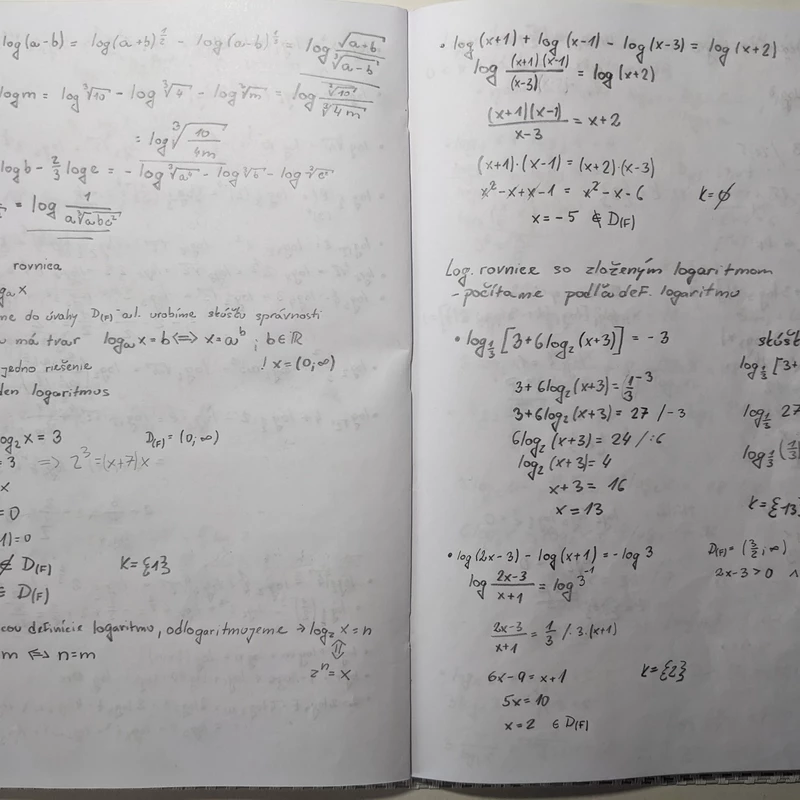 log(a-b) = log(a+b)^{1/2} - log(a-b)^{1/3} = log \frac{\sqrt{a+b}}{\sqrt[3]{a-b}}
log m = log \sqrt[3]{10} - log \sqrt[3]{4} - log \sqrt[3]{m} = log \frac{\sqrt[3]{10}}{\sqrt[3]{4m}}
= log \sqrt[3]{\frac{10}{4m}}
log b - \frac{2}{3} log c = - log \sqrt[3]{a^4} - log \sqrt[3]{b} - log \sqrt[3]{c^2}
= log \frac{1}{a\sqrt[3]{abc^2}}
rovnica
x
do úvahy D(F) al. urobíme skúšku správnosti
má tvar log_a x = b <=> x = a^b ; b ∈ ℝ
jedno riešenie ! x = (0; ∞)
logaritmus
x = 3 D(F) = (0; ∞)
= 3 => 2^3 = (x+7)x
x
= 0
1) = 0
∉ D(F) K = {1}
∈ D(F)
definície logaritmu, odlogaritmujeme → log_2 x = n
m <=> n = m ⇕
2^n = x
• log(x+1) + log(x-1) - log(x-3) = log(x+2)
log \frac{(x+1)(x-1)}{(x-3)} = log(x+2)
\frac{(x+1)(x-1)}{x-3} = x+2
(x+1)·(x-1) = (x+2)·(x-3)
x^2 - x + x - 1 = x^2 - x - 6 K = ∅
x = -5 ∉ D(F)
Log. rovnice so zloženým logaritmom
- počítame podľa def. logaritmu
• log_{1/3} [3 + 6log_2(x+3)] = -3
log_{1/3} [3+
3 + 6log_2(x+3) = \frac{1}{3}^{-3}
3 + 6log_2(x+3) = 27 /-3 log_{1/3} 27
6log_2(x+3) = 24 /:6
log_2(x+3) = 4 log_{1/3} (\frac{1}{3})
x+3 = 16
x = 13 K = {13}
• log(2x-3) - log(x+1) = -log 3 D(F) = (\frac{3}{2}; ∞)
log \frac{2x-3}{x+1} = log 3^{-1} 2x-3 > 0 ∧
\frac{2x-3}{x+1} = \frac{1}{3} /·3·(x+1)
6x-9 = x+1 K = {2}
5x = 10
x = 2 ∈ D(F)